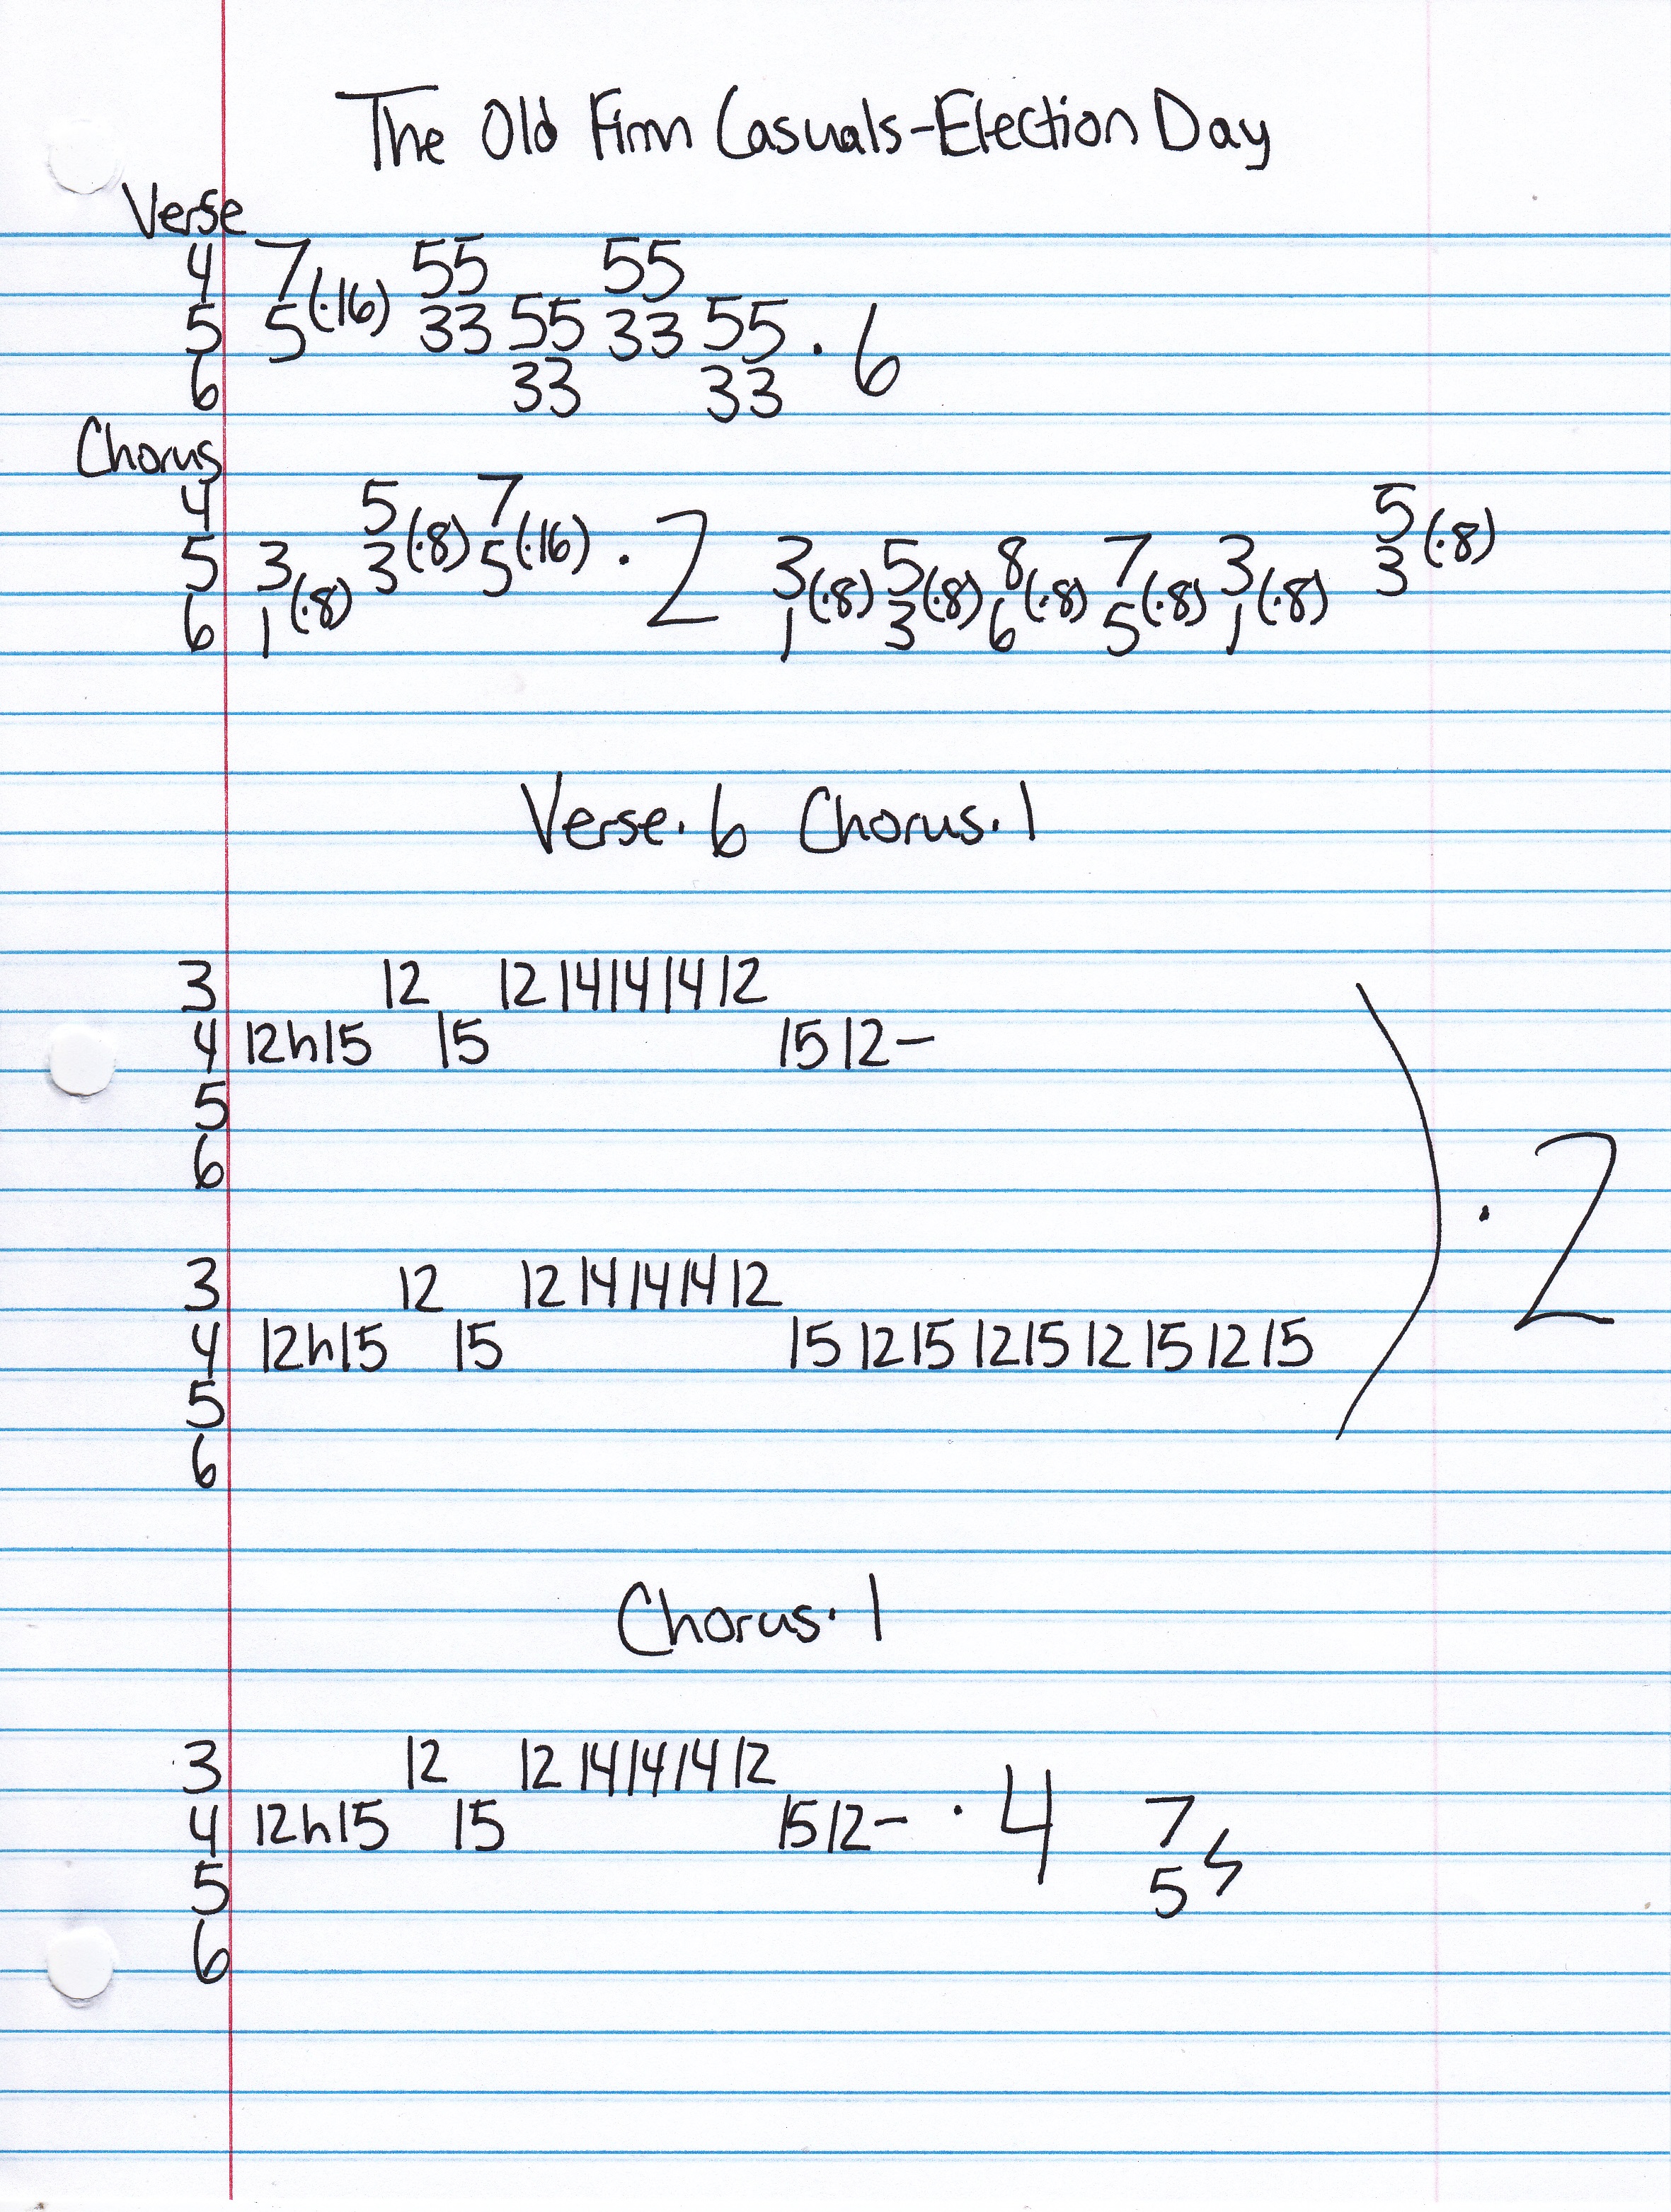 The Old Firm Casuals-Election Day
Verse
4 7 55 55
5 5(·16) 33 55 33 55 · 6
6 33 33
Chorus
4 5 7 5
5 3 3(·8) 5(·16) · 2 3 5 8 7 3 3(·8)
6 1(·8) 1(·8) 3(·8) 6(·8) 5(·8) 1(·8)
Verse·6 Chorus·1
3 12 12 14 14 14 12
4 12h15 15 15 12-
5
6
) · 2
3 12 12 14 14 14 12
4 12h15 15 15 12 15 12 15 12 15 12 15
5
6
Chorus·1
3 12 12 14 14 14 12
4 12h15 15 15 12- · 4 7
5 5
6